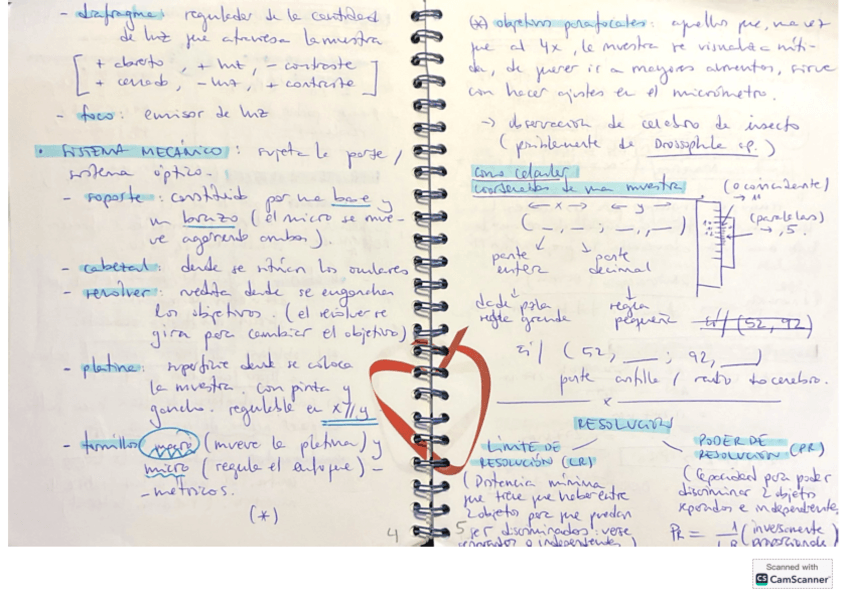 - diafragma: regulador de la cantidad
de luz que atraviesa la muestra
[+ abierto, + luz, - contraste
+ cerrado, - luz, + contraste]
- foco: emisor de luz
• SISTEMA MECÁNICO: sujeta la parte/
sistema óptico.
- soporte: constituido por una base y
un brazo (el micro se mue-
ve agarrando ambos).
- cabezal: donde se sitúan los oculares
- revólver: ruedita donde se enganchan
los objetivos. (el revólver se
gira para cambiar el objetivo)
- platina: superficie donde se coloca
la muestra con pinta y
gancho. regulable en x // y
- tornillos macro (mueve la platina) y
micro (regula el enfoque) -
- métricos.
(*)
4
(*) objetivos parafocales: aquellos que, una vez
que al 4x, la muestra se visualiza níti-
da, de querer ir a mayores aumentos, sirve
con hacer ajustes en el micrómetro.
-> observación de celebro de insecto
(posiblemente de Drosophila sp.)
como calcular
coordenadas de una muestra
(o coincidente)
← x → ← y →
(_,_ ; _,_)
(paralelas)
→ ,5
parte entera
parte decimal
dada por la regla grande
regla pequeña
ej// (52, 92)
ej/ (52,__ ; 92,__)
x
RESOLUCIÓN
LÍMITE DE
RESOLUCIÓN (LR)
(Distancia mínima
que tiene que haber entre
2 objetos para que puedan
ser discriminados: verse
separados o independientes)
PODER DE
RESOLUCIÓN (PR)
(Capacidad para poder
discriminar 2 objeto
separados e independientes
PR = 1/LR (inversamente
proporcional)
5
Scanned with
CS CamScanner